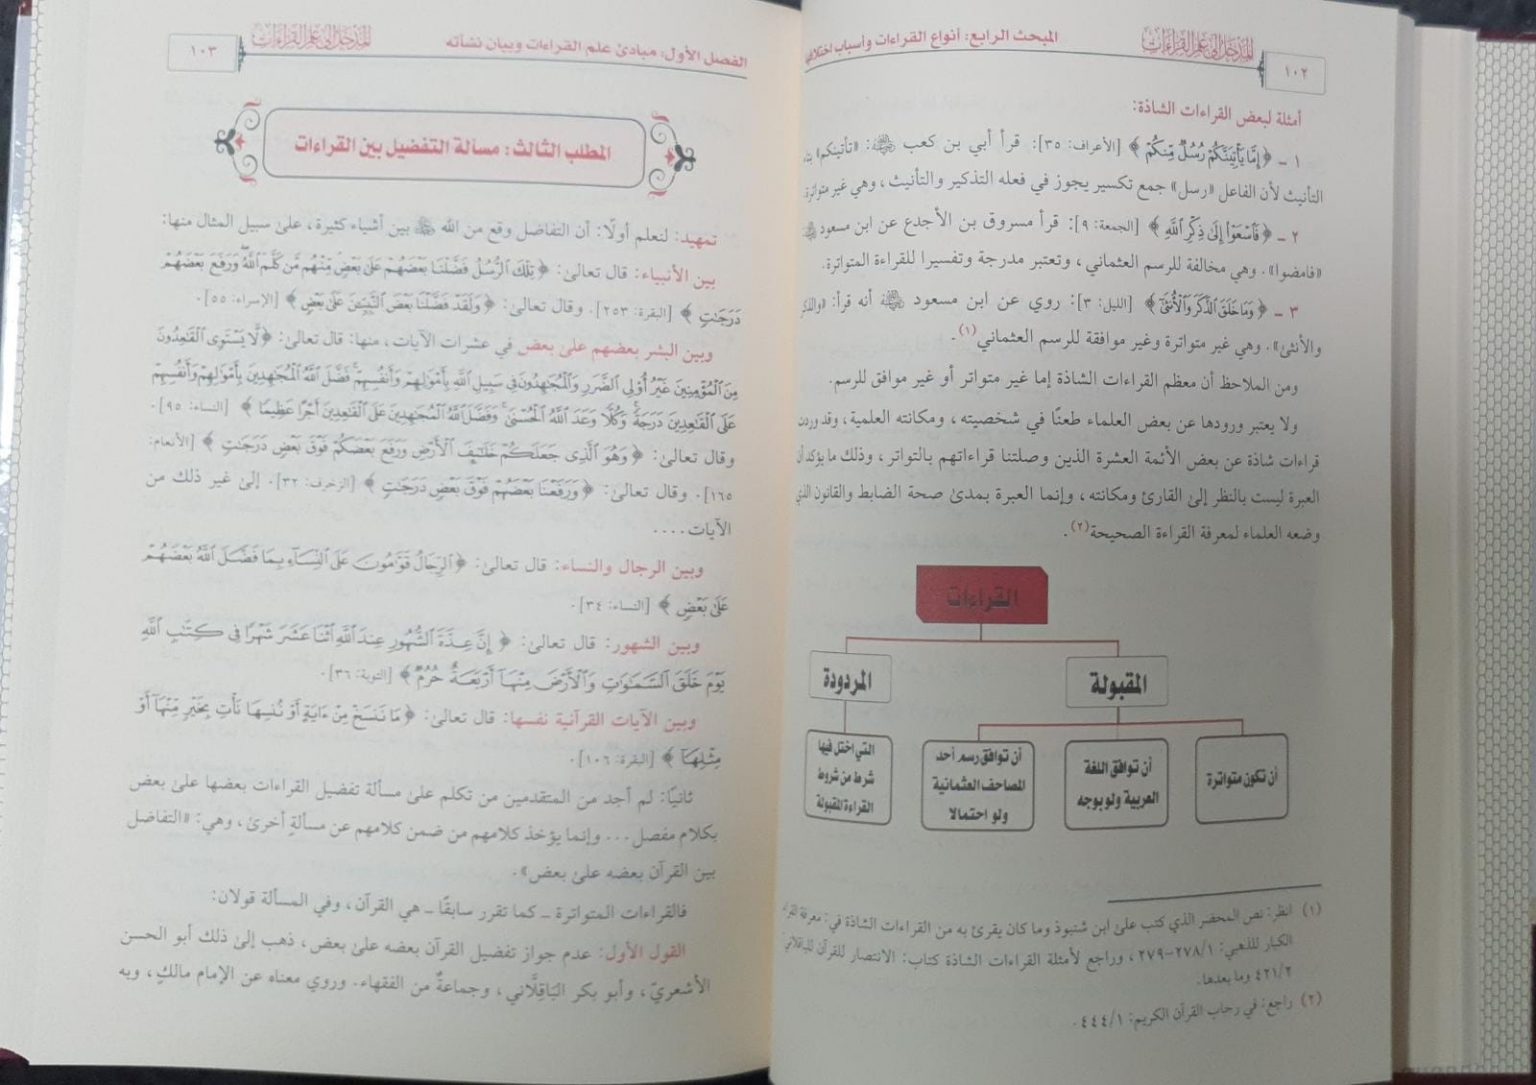 ١٠٢
المدخل إلى علم القراءات
المبحث الرابع: أنواع القراءات وأسباب اختلافها
أمثلة لبعض القراءات الشاذة:
١ ـ ﴿إِمَّا يَأْتِيَنَّكُمْ رُسُلٌ مِّنكُمْ﴾ [الأعراف: ٣٥]: قرأ أبي بن كعب ﷺ: «تأتينكم» بتاء
التأنيث لأن الفاعل «رسل» جمع تكسير يجوز في فعله التذكير والتأنيث، وهي غير متواترة.
٢ ـ ﴿فَاسْعَوْا إِلَىٰ ذِكْرِ اللَّهِ﴾ [الجمعة: ٩]: قرأ مسروق بن الأجدع عن ابن مسعود
«فامضوا». وهي مخالفة للرسم العثماني، وتعتبر مدرجة وتفسيرا للقراءة المتواترة.
٣ ـ ﴿وَمَا خَلَقَ الذَّكَرَ وَالْأُنثَىٰ﴾ [الليل: ٣]: روي عن ابن مسعود أنه قرأ: «والذكر
والأنثى». وهي غير متواترة وغير موافقة للرسم العثماني(١).
ومن الملاحظ أن معظم القراءات الشاذة إما غير متواتر أو غير موافق للرسم.
ولا يعتبر ورودها عن بعض العلماء طعنًا في شخصيته، ومكانته العلمية، وقد وردت
قراءات شاذة عن بعض الأئمة العشرة الذين وصلتنا قراءاتهم بالتواتر، وذلك ما يؤكد أن
العبرة ليست بالنظر إلى القارئ ومكانته، وإنما العبرة بمدى صحة الضابط والقانون الذي
وضعه العلماء لمعرفة القراءة الصحيحة(٢).
القراءات
المقبولة
المردودة
أن تكون متواترة
أن توافق اللغة
العربية ولو بوجه
أن توافق رسم أحد
المصاحف العثمانية
ولو احتمالا
التي اختل فيها
شرط من شروط
القراءة المقبولة
(١) انظر: نص المحضر الذي كتب على ابن شنبوذ وما كان يقرئ به من القراءات الشاذة في: معرفة القراء
الكبار للذهبي: ٢٧٨/١-٢٧٩، وراجع لأمثلة القراءات الشاذة كتاب: الانتصار للقرآن للباقلاني:
٤٢١/٢ وما بعدها.
(٢) راجع: في رحاب القرآن الكريم: ٤٤٤/١.
الفصل الأول: مبادئ علم القراءات وبيان نشأته
المدخل إلى علم القراءات
١٠٣
المطلب الثالث: مسألة التفضيل بين القراءات
تمهيد: لنعلم أولًا: أن التفاضل وقع من الله بين أشياء كثيرة، على سبيل المثال منها:
بين الأنبياء: قال تعالى: ﴿تِلْكَ الرُّسُلُ فَضَّلْنَا بَعْضَهُمْ عَلَىٰ بَعْضٍ مِّنْهُم مَّن كَلَّمَ اللَّهُ وَرَفَعَ بَعْضَهُمْ
دَرَجَاتٍ﴾ [البقرة: ٢٥٣]. وقال تعالى: ﴿وَلَقَدْ فَضَّلْنَا بَعْضَ النَّبِيِّينَ عَلَىٰ بَعْضٍ﴾ [الإسراء: ٥٥].
وبين البشر بعضهم على بعض في عشرات الآيات، منها: قال تعالى: ﴿لَّا يَسْتَوِي الْقَاعِدُونَ
مِنَ الْمُؤْمِنِينَ غَيْرُ أُولِي الضَّرَرِ وَالْمُجَاهِدُونَ فِي سَبِيلِ اللَّهِ بِأَمْوَالِهِمْ وَأَنفُسِهِمْ فَضَّلَ اللَّهُ الْمُجَاهِدِينَ بِأَمْوَالِهِمْ وَأَنفُسِهِمْ
عَلَى الْقَاعِدِينَ دَرَجَةً وَكُلًّا وَعَدَ اللَّهُ الْحُسْنَىٰ وَفَضَّلَ اللَّهُ الْمُجَاهِدِينَ عَلَى الْقَاعِدِينَ أَجْرًا عَظِيمًا﴾ [النساء: ٩٥].
وقال تعالى: ﴿وَهُوَ الَّذِي جَعَلَكُمْ خَلَائِفَ الْأَرْضِ وَرَفَعَ بَعْضَكُمْ فَوْقَ بَعْضٍ دَرَجَاتٍ﴾ [الأنعام:
١٦٥]. وقال تعالى: ﴿وَرَفَعْنَا بَعْضَهُمْ فَوْقَ بَعْضٍ دَرَجَاتٍ﴾ [الزخرف: ٣٢]. إلى غير ذلك من
الآيات....
وبين الرجال والنساء: قال تعالى: ﴿الرِّجَالُ قَوَّامُونَ عَلَى النِّسَاءِ بِمَا فَضَّلَ اللَّهُ بَعْضَهُمْ
عَلَىٰ بَعْضٍ﴾ [النساء: ٣٤].
وبين الشهور: قال تعالى: ﴿إِنَّ عِدَّةَ الشُّهُورِ عِندَ اللَّهِ اثْنَا عَشَرَ شَهْرًا فِي كِتَابِ اللَّهِ
يَوْمَ خَلَقَ السَّمَاوَاتِ وَالْأَرْضَ مِنْهَا أَرْبَعَةٌ حُرُمٌ﴾ [التوبة: ٣٦].
وبين الآيات القرآنية نفسها: قال تعالى: ﴿مَا نَنسَخْ مِنْ آيَةٍ أَوْ نُنسِهَا نَأْتِ بِخَيْرٍ مِّنْهَا أَوْ
مِثْلِهَا﴾ [البقرة: ١٠٦].
ثانيًا: لم أجد من المتقدمين من تكلم على مسألة تفضيل القراءات بعضها على بعض
بكلام مفصل... وإنما يؤخذ كلامهم من ضمن كلامهم عن مسألةٍ أخرى، وهي: «التفاضل
بين القرآن بعضه على بعض».
فالقراءات المتواترة ـ كما تقرر سابقًا ـ هي القرآن، وفي المسألة قولان:
القول الأول: عدم جواز تفضيل القرآن بعضه على بعض، ذهب إلى ذلك أبو الحسن
الأشعريّ، وأبو بكر الباقِلَّاني، وجماعةٌ من الفقهاء. وروي معناه عن الإمام مالكٍ، وبه